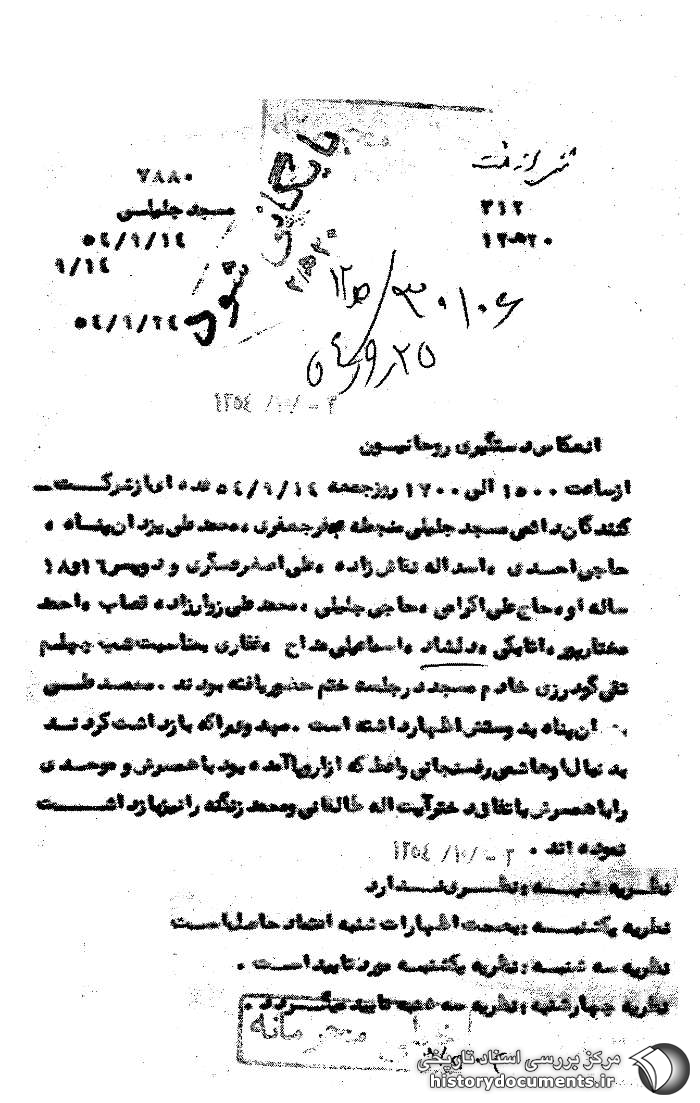 بایگانی شود
۷۸۸۰
۳۱۲
مسجد جلیلی
۱۲ﻫ۲۰
۵٤/۹/۱٤
۹/۱٤
۵٤/۹/۲٤
۳۰۱۰۶
۵٤/۹/۲۵
۲-/۱۰/ ۱۳۵٤
انعکاس دستگیری روحانیون
از ساعت ۱۵۰۰ الی ۱۷۰۰ روز جمعه ۵٤/۹/۱٤ عده ای از شرکت
کنندگان دائمی مسجد جلیلی منجمله جعفری ، محمد علی یزدان پناه ،
حاجی احمدی ، اسداله نقاش زاده ، علی اصغر عسگری و دو پسر ۱٦ و ۱۸
ساله او ، حاج علی اکرامی ، حاجی جلیلی ، محمد علی زوارزاده قصاب ، احمد
مختارپور ، اتابکی ، دلشاد ، اسماعیلی مداح ، غفاری بمناسبت شب چهلم
تقی گودرزی خادم مسجد در جلسه ختم حضور یافته بودند . محمد علی
یزدان پناه به دوستش اظهار داشته است . مهدوی را که بازداشت کردند
به دنبال او هاشمی رفسنجانی واعظ که از اروپا آمده بود با همسرش و موحدی
را با همسرش باتفاق دختر آیت اله طالقانی و محمد زنگنه را نیز بازداشت
نموده اند .
۲-/۱۰/ ۱۳۵٤
نظریه شنبه : نظری ندارد
نظریه یکشنبه : بصحت اظهارات شنبه اعتماد حاصل است
نظریه سه شنبه : نظریه یکشنبه مورد تایید است .
نظریه چهارشنبه : نظریه سه شنبه تایید میگردد .
خیلی محرمانه
مرکز بررسی اسناد تاریخی
historydocuments.ir